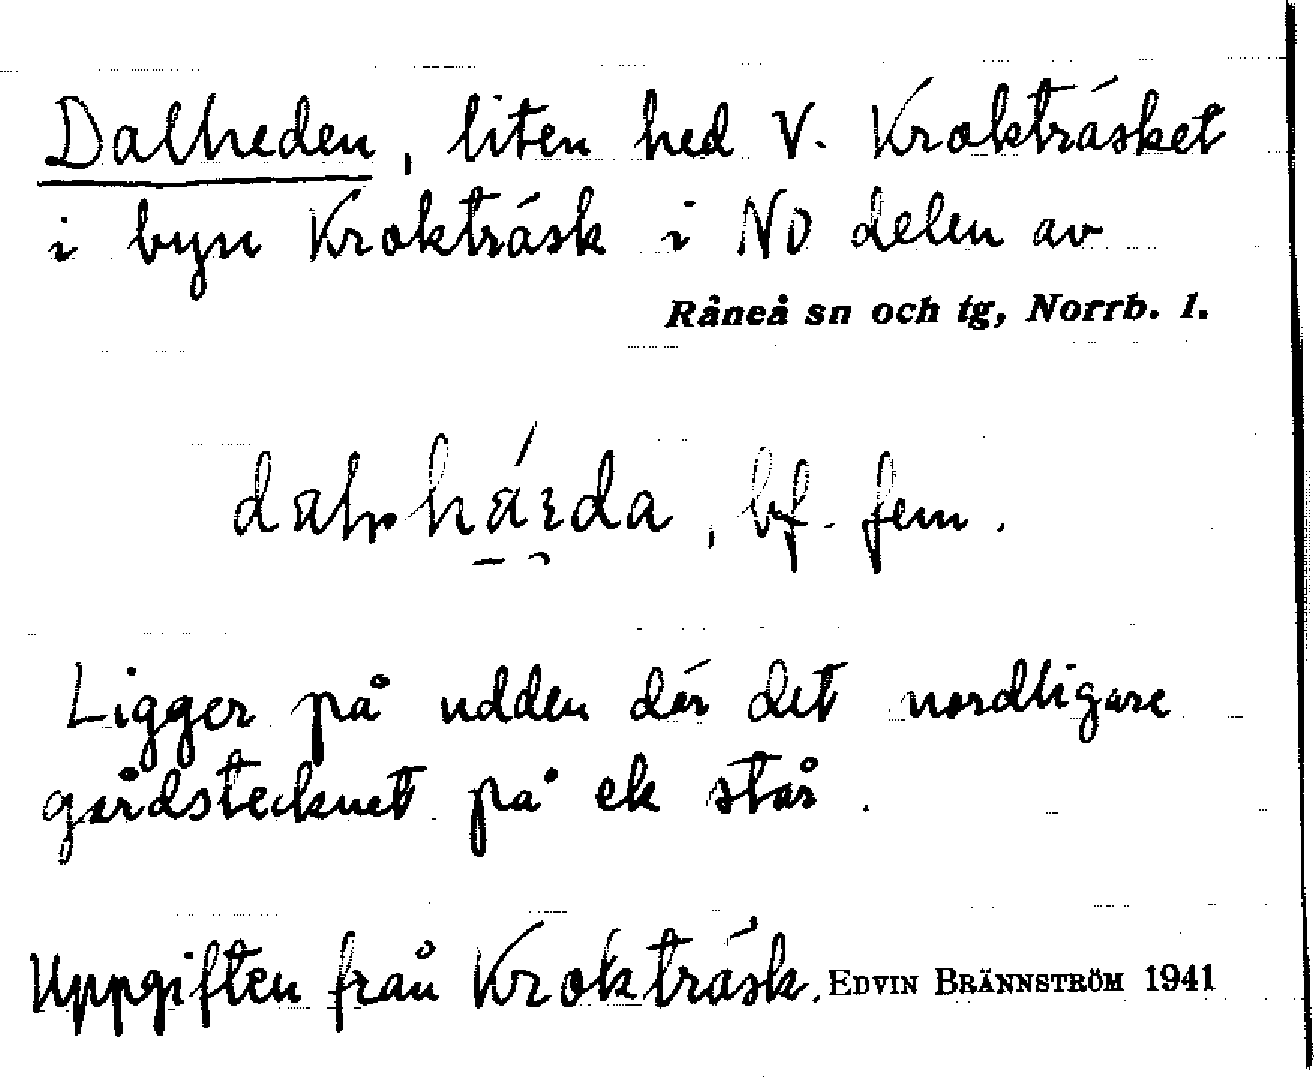 Dalheden, liten hed V. Krokträsket
i byn Krokträsk i NO delen av
Råneå sn och tg, Norrb. l.
, bf. fem.
Ligger på udden där det nordligare
gårdstecknet på ek står.
Uppgiften från Krokträsk. EDVIN BRÄNNSTRÖM 1941